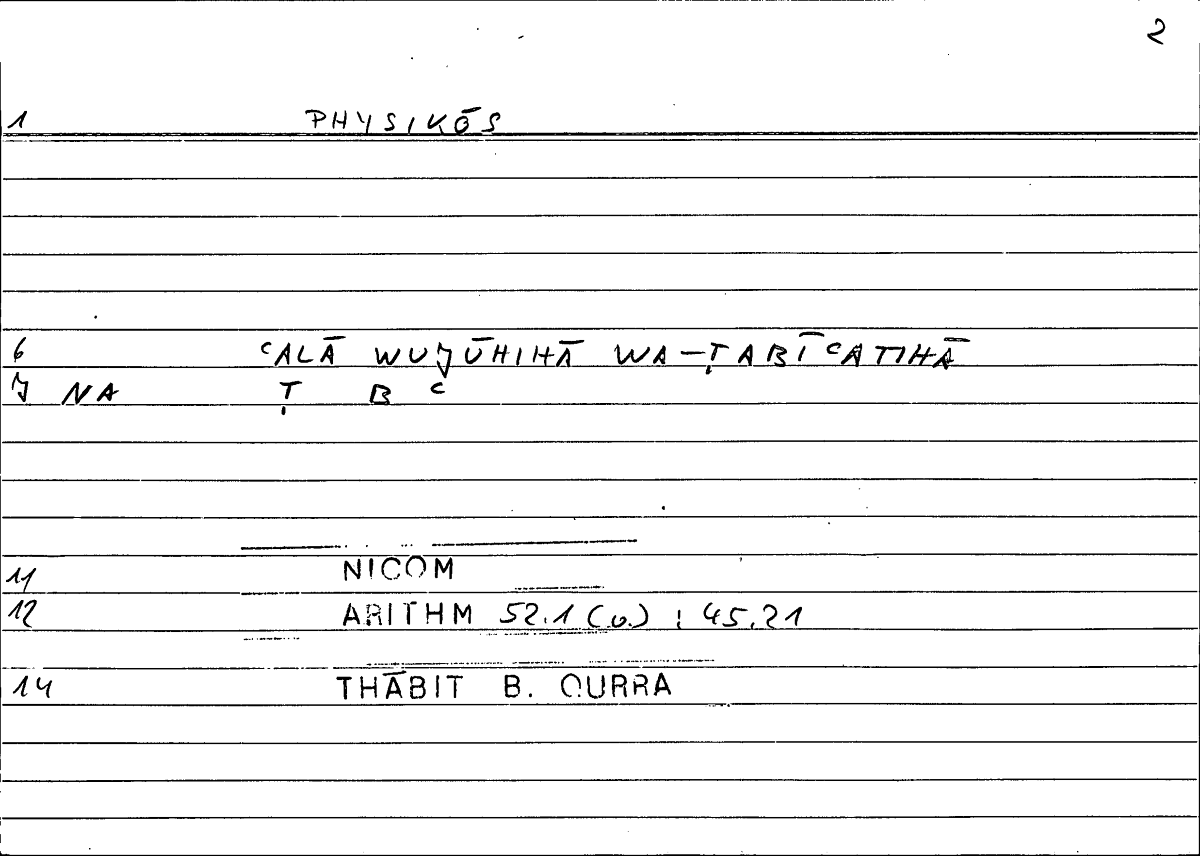 2
1 PHYSIKŌS
6 ᶜALĀ WUJŪHIHĀ WA-ṬABĪᶜATIHĀ
J NA Ṭ B ᶜ
11 NICOM
12 ARITHM 52.1 (u.) ; 45.21
14 THĀBIT B. QURRA